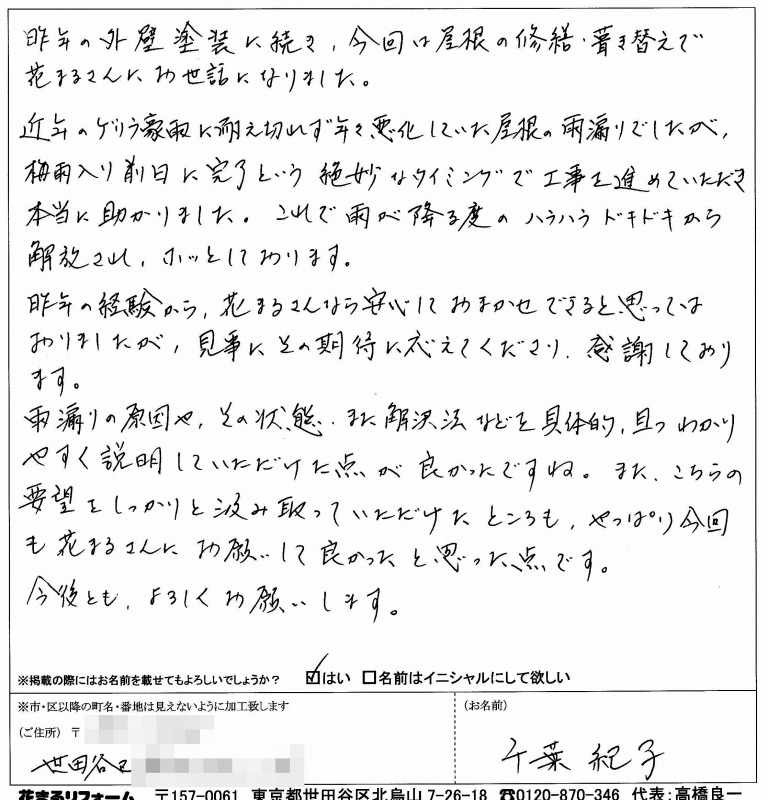 昨年の外壁塗装に続き、今回は屋根の修繕・葺き替えで
花まるさんにお世話になりました。
近年のゲリラ豪雨に耐え切れず年々悪化していた屋根の雨漏りでしたが、
梅雨入り前日に完了という絶妙なタイミングで工事を進めていただき
本当に助かりました。これで雨が降る度のハラハラドキドキから
解放され、ホッとしております。
昨年の経験から、花まるさんなら安心しておまかせできると思っては
おりましたが、見事にその期待に応えてくださり、感謝しており
ます。
雨漏りの原因や、その状態、また解決法などを具体的、且つわかり
やすく説明していただけた点が良かったですね。また、こちらの
要望をしっかりと汲み取っていただけたところも、やっぱり今回
も花まるさんにお願いして良かったと思った点です。
今後とも、よろしくお願いします。
※掲載の際にはお名前を載せてもよろしいでしょうか? ☑はい □名前はイニシャルにして欲しい
※市・区以降の町名・番地は見えないように加工致します
(ご住所) 〒
世田谷区
(お名前)
千葉 紀子
花まるリフォーム 〒157-0061 東京都世田谷区北烏山7-26-18 ☎0120-870-346 代表:高橋良一